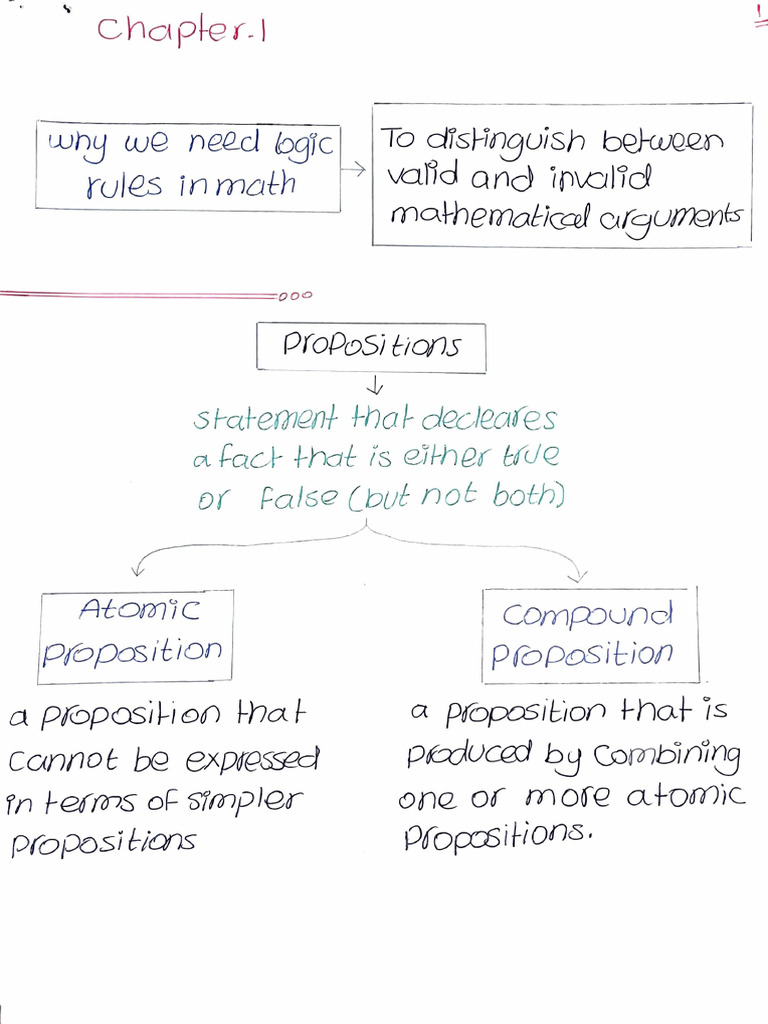 Chapter.1
1
why we need logic
rules in math
To distinguish between
valid and invalid
mathematical arguments
Propositions
statement that decleares
a fact that is either true
or false (but not both)
Atomic
proposition
Compound
proposition
a proposition that
cannot be expressed
in terms of simpler
propositions
a proposition that is
produced by combining
one or more atomic
propositions.